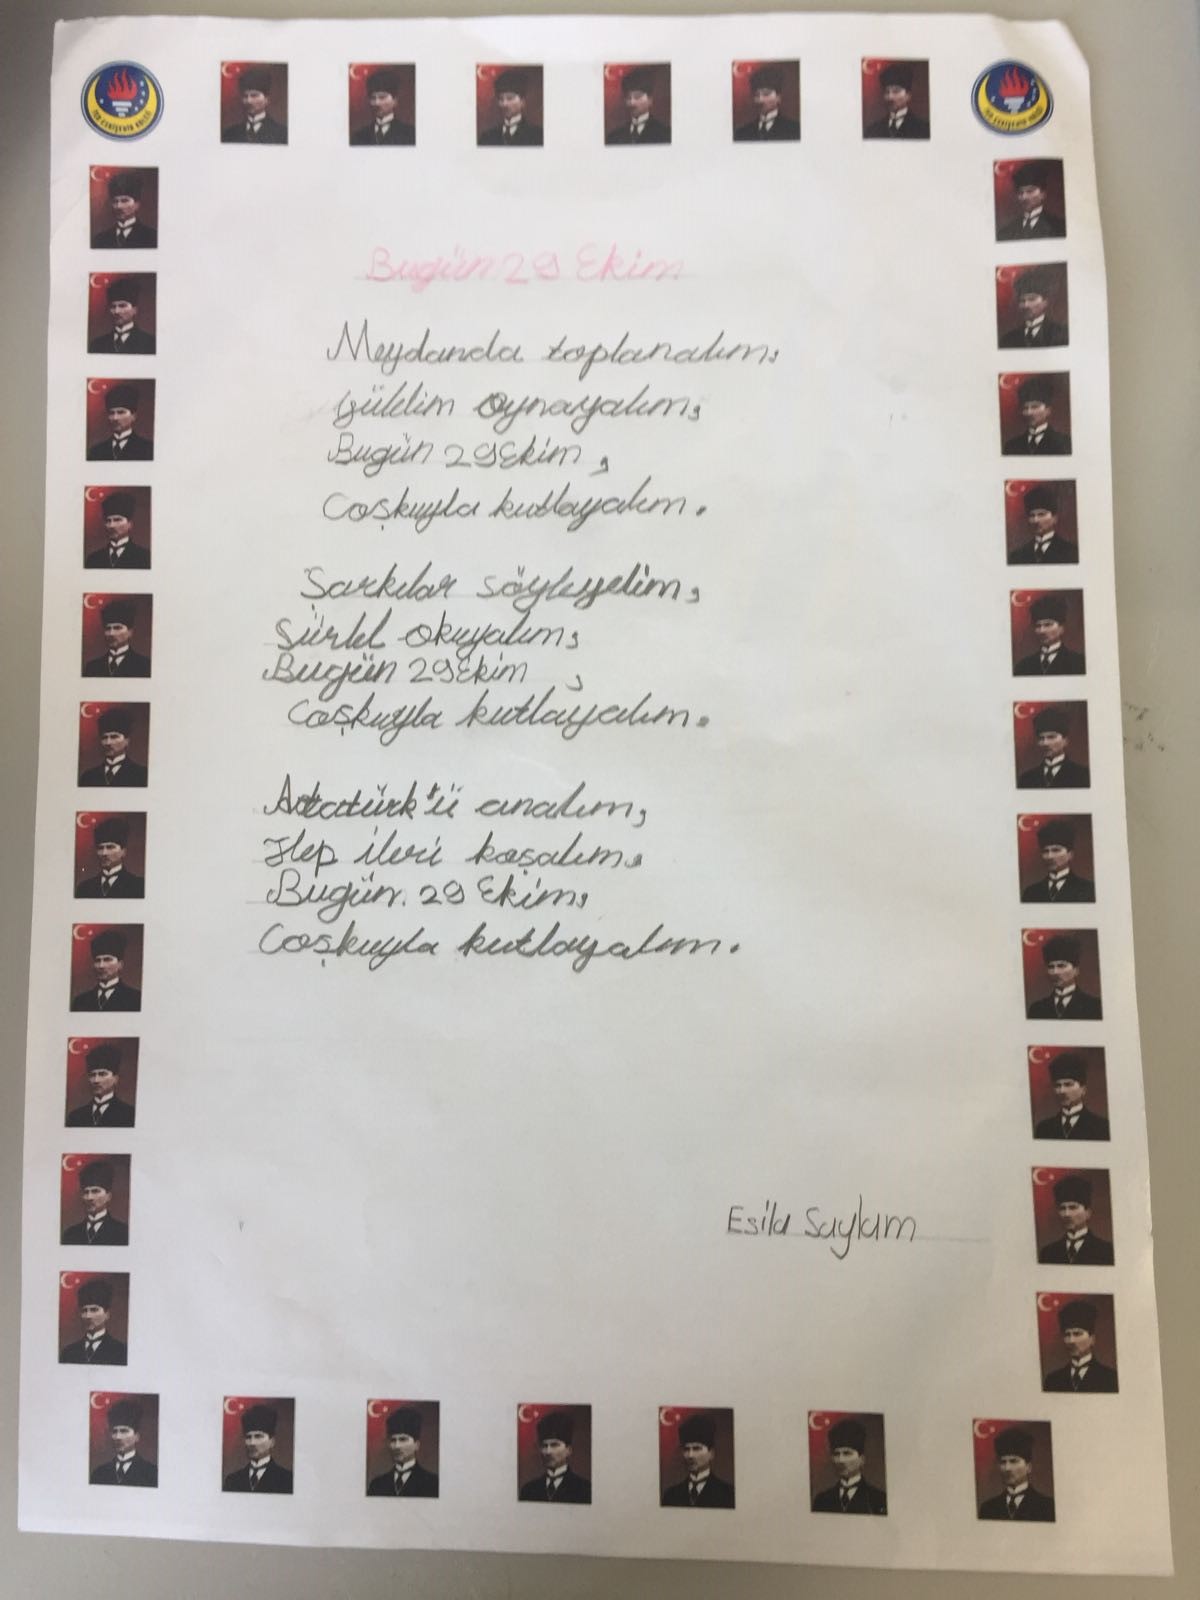 Bugün 29 Ekim
Meydanda toplanalım,
Gülelim oynayalım,
Bugün 29 Ekim,
Coşkuyla kutlayalım.
Şarkılar söyleyelim,
okuyalım,
Bugün 29 Ekim,
Coşkuyla kutlayalım.
Atatürk'ü analım,
Hep ileri koşalım,
Bugün. 29 Ekim,
Coşkuyla kutlayalım.
Esila Saylam